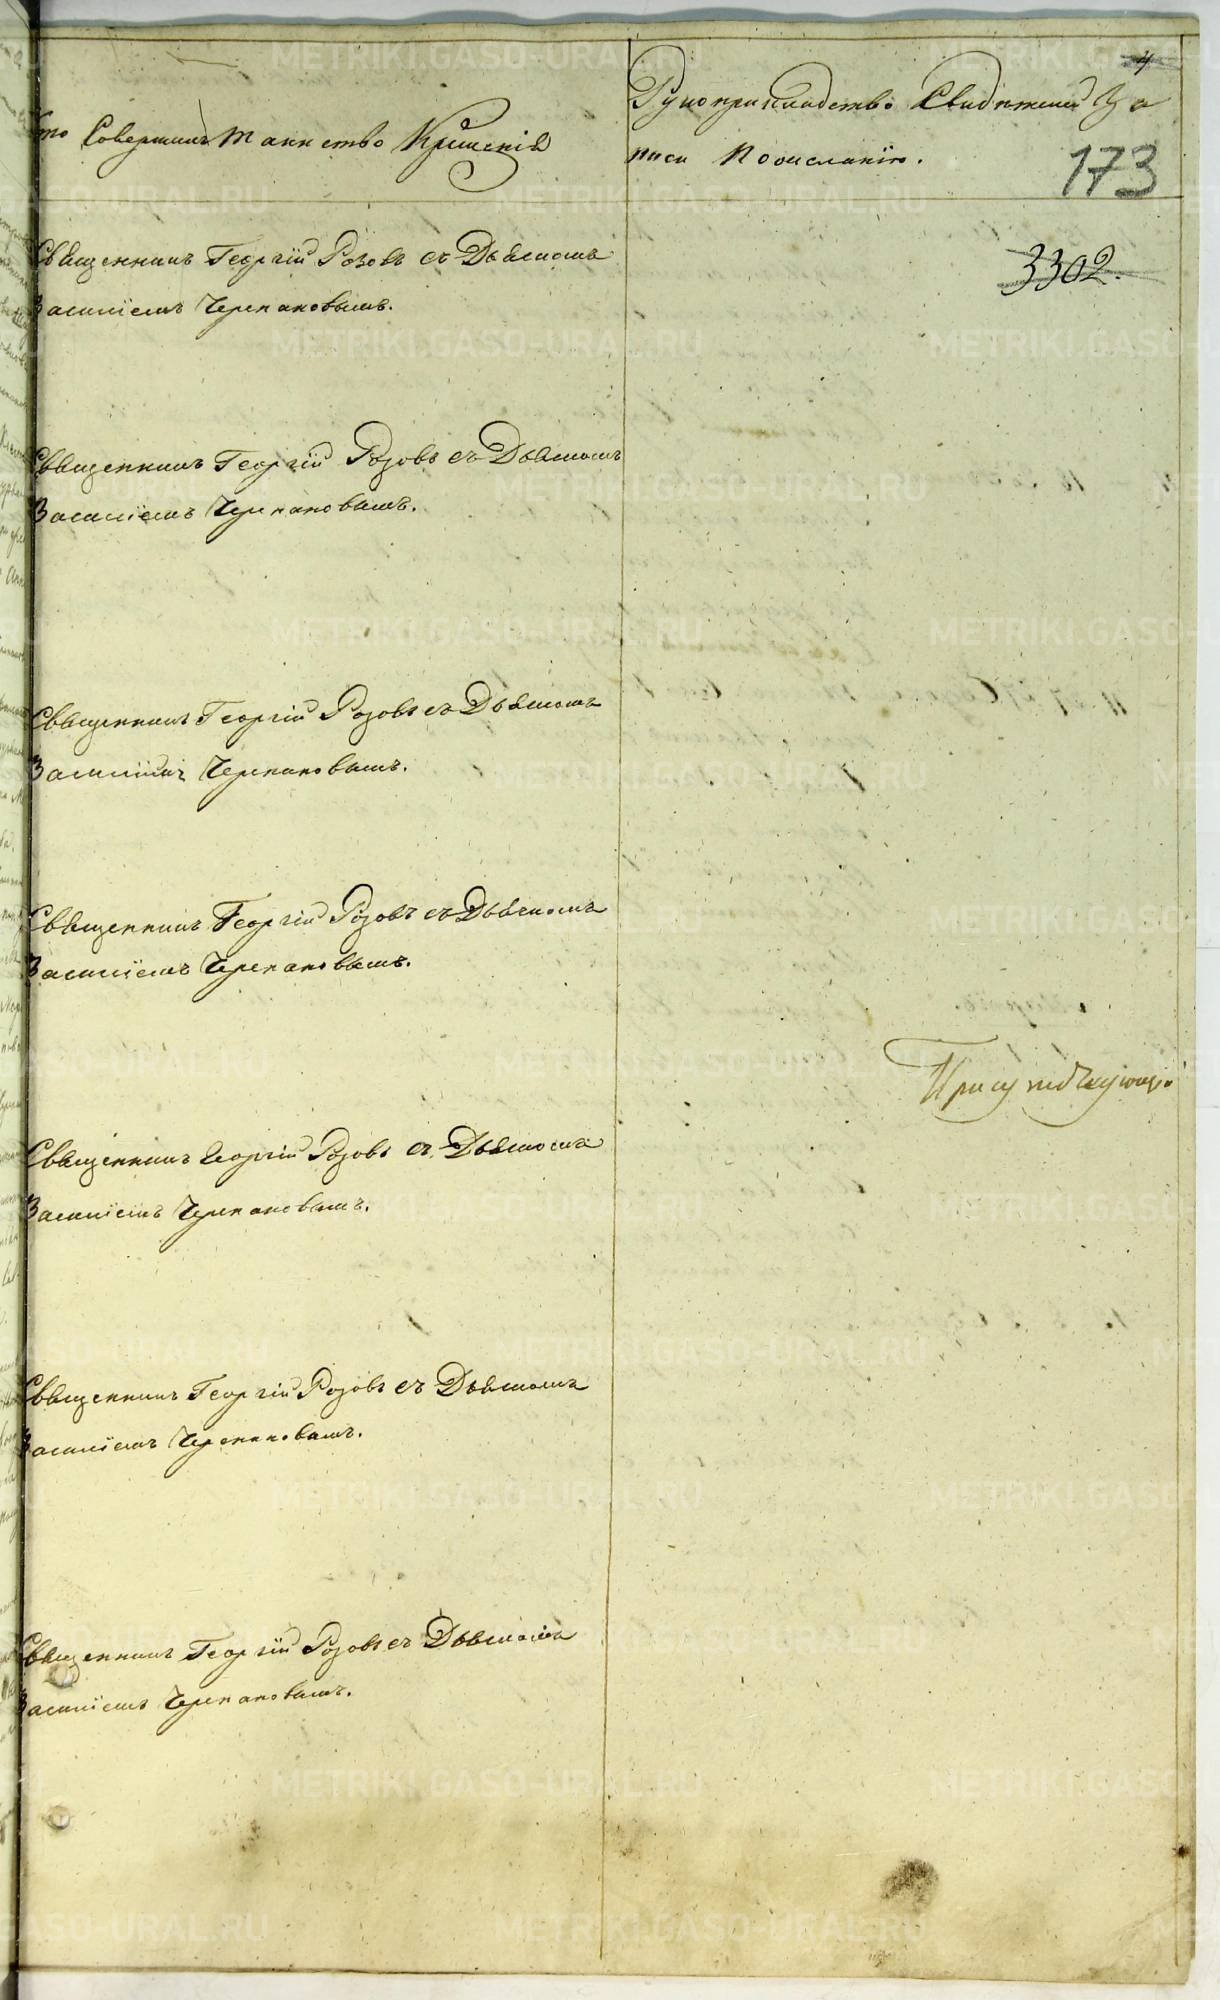 Кто Совершилъ Таинство Крещенія
Рукоприкладство Свидѣтелей За
писи По желанію.
4
173
3302.
Священникъ Георгій Розовъ съ Дьякомъ
Василіемъ Черепановымъ.
Священникъ Георгій Розовъ съ Дьякомъ
Василіемъ Черепановымъ.
Священникъ Георгій Розовъ съ Дьякомъ
Василіемъ Черепановымъ.
Священникъ Георгій Розовъ съ Дьякомъ
Василіемъ Черепановымъ.
Священникъ Георгій Розовъ съ Дьякомъ
Василіемъ Черепановымъ.
Священникъ Георгій Розовъ съ Дьякомъ
Василіемъ Черепановымъ.
Священникъ Георгій Розовъ съ Дьякомъ
Василіемъ Черепановымъ.
METRIKI.GASO-URAL.RU